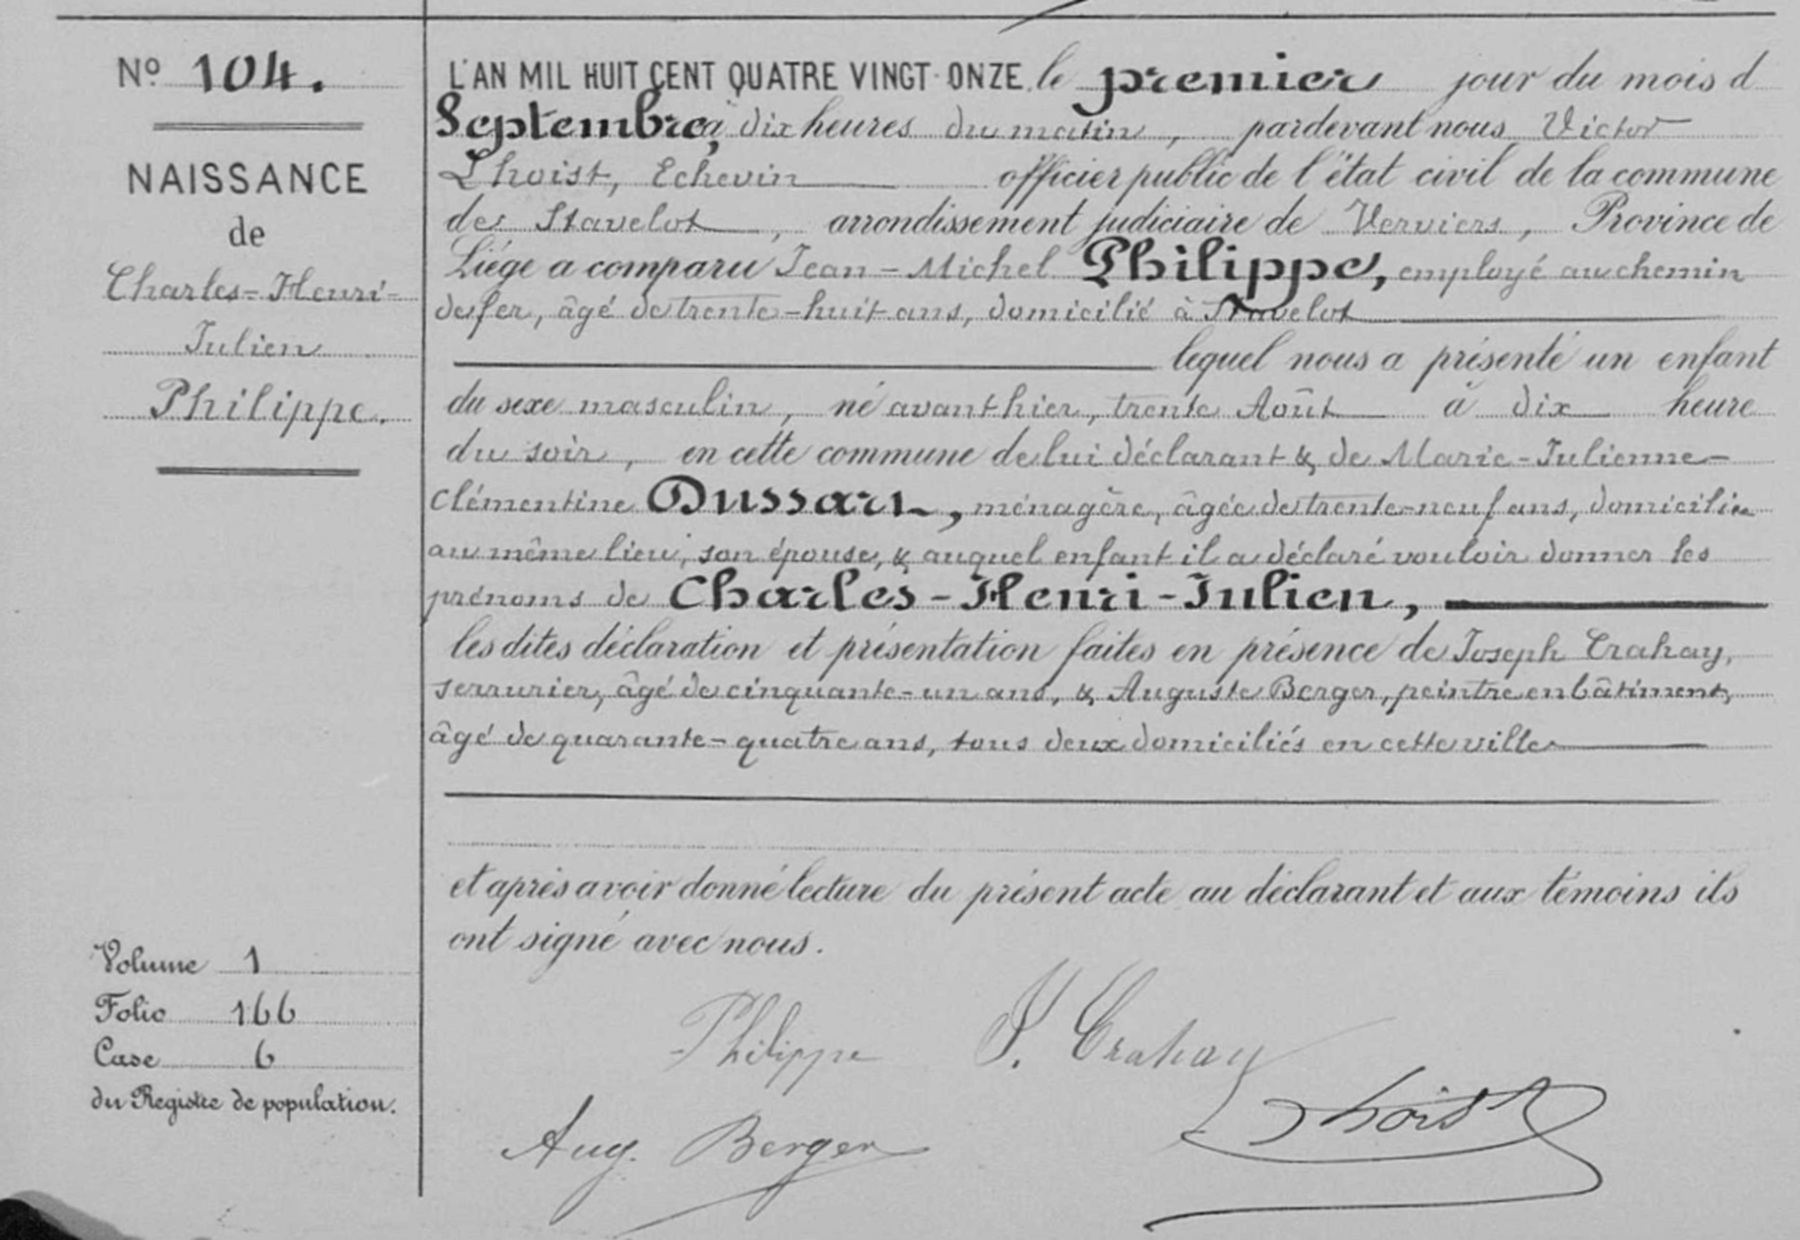 Nº 104.
NAISSANCE
de
Charles-Henri-
Julien
Philippe.
Volume 1
Folio 166
Case 6
du Registre de population.
L'AN MIL HUIT CENT QUATRE VINGT-ONZE le premier jour du mois d
Septembre, à dix heures du matin, pardevant nous Victor
Lhoist, Echevin officier public de l'état civil de la commune
de Stavelot, arrondissement judiciaire de Verviers, Province de
Liége a comparu Jean-Michel Philippe, employé au chemin
de fer, âgé de trente-huit ans, domicilié à Stavelot
lequel nous a présenté un enfant
du sexe masculin, né avanthier, trente Août à dix heure
du soir, en cette commune de lui déclarant & de Marie-Julienne-
Clémentine Dussart, ménagère, âgée de trente-neuf ans, domiciliée
au même lieu, son épouse, & auquel enfant il a déclaré vouloir donner les
prénoms de Charles-Henri-Julien,
les dites déclaration et présentation faites en présence de Joseph Crahay,
serrurier, âgé de cinquante-un ans, & Auguste Berger, peintre en bâtiment,
âgé de quarante-quatre ans, tous deux domiciliés en cette ville
et après avoir donné lecture du présent acte au déclarant et aux témoins ils
ont signé avec nous.
Philippe J. Crahay
Aug. Berger Lhoist